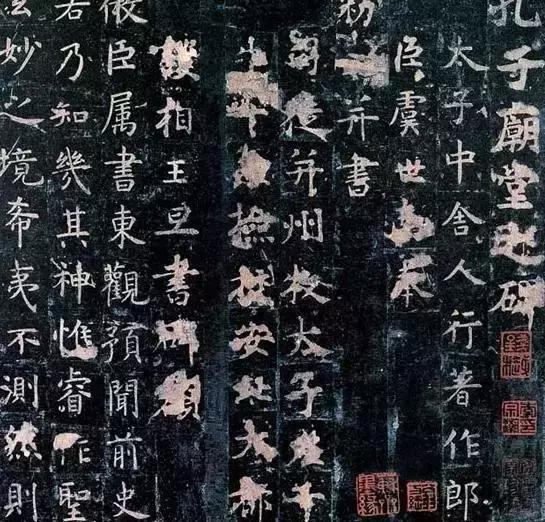 孔子廟堂之碑
太子中舍人行著作郎
臣虞世南奉
勑撰并書
司徒并州牧太子左千
牛率兼撿挍安北大都
護相王旦書碑額
微臣属書東觀預聞前史
若乃知幾其神惟睿作聖
玄妙之境希夷不測然則